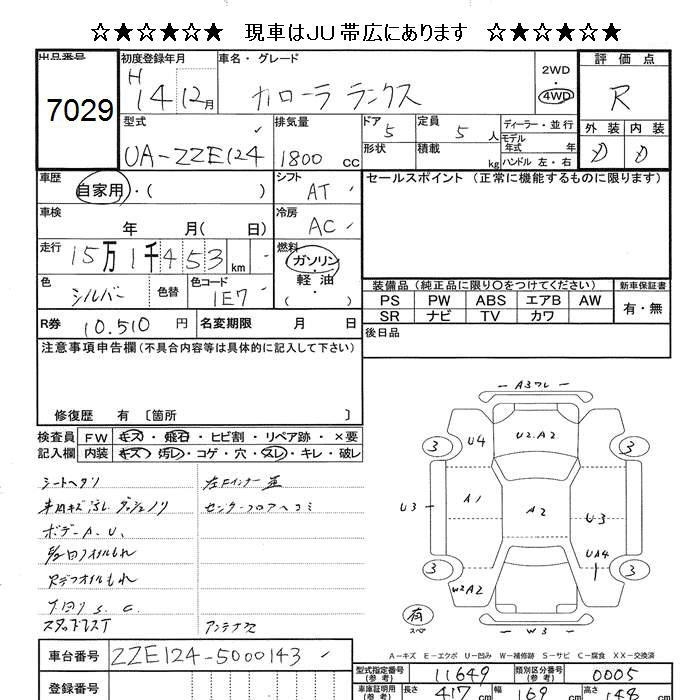 ☆★☆★☆★ 現車はJU帯広にあります ☆★☆★☆★
出品番号 7029
初度登録年月 H 14 12月
車名・グレード カローラ ランクス
2WD・4WD
評価点 R
外装 D 内装 D
型式 UA-ZZE124
排気量 1800 cc
ドア 5 形状
定員 5人 積載 kg
ディーラー・並行
モデル年式 年式
ハンドル 左・右
車歴 自家用・( )
シフト AT
セールスポイント (正常に機能するものに限ります)
車検 年 月( 日)
冷房 AC
走行 15万1千453 km
燃料 ガソリン・軽油
色 シルバー 色替
色コード 1E7
装備品 (純正品に限り○をつけてください) 新車保証書
PS PW ABS エアB AW 有・無
SR ナビ TV カワ
R券 10.510 円 名変期限 月 日
後日品
注意事項申告欄 (不具合内容等は具体的に記入して下さい)
修復歴 有 〔箇所 〕
検査員 FW キズ・飛石・ヒビ割・リペア跡・×要
記入欄 内装 キズ・汚レ・コゲ・穴・スレ・キレ・破レ
シートヘタリ
ボデーA.U.
下回りS.C.
センターフロアヘコミ
アンテナ欠
A3ワレ
3 U4 U2.A2 3
U3 A1 A2 U3
UA4
3 W2A2 3
有 スペア W3
A-キズ E-エクボ U-凹み W-補修跡 S-サビ C-腐食 XX-交換済
車台番号 ZZE124-5000143
型式指定番号(参考) 11649 類別区分番号(参考) 0005
登録番号
車庫証明用(参考) 長さ 417 cm 幅 169 cm 高さ 158 cm